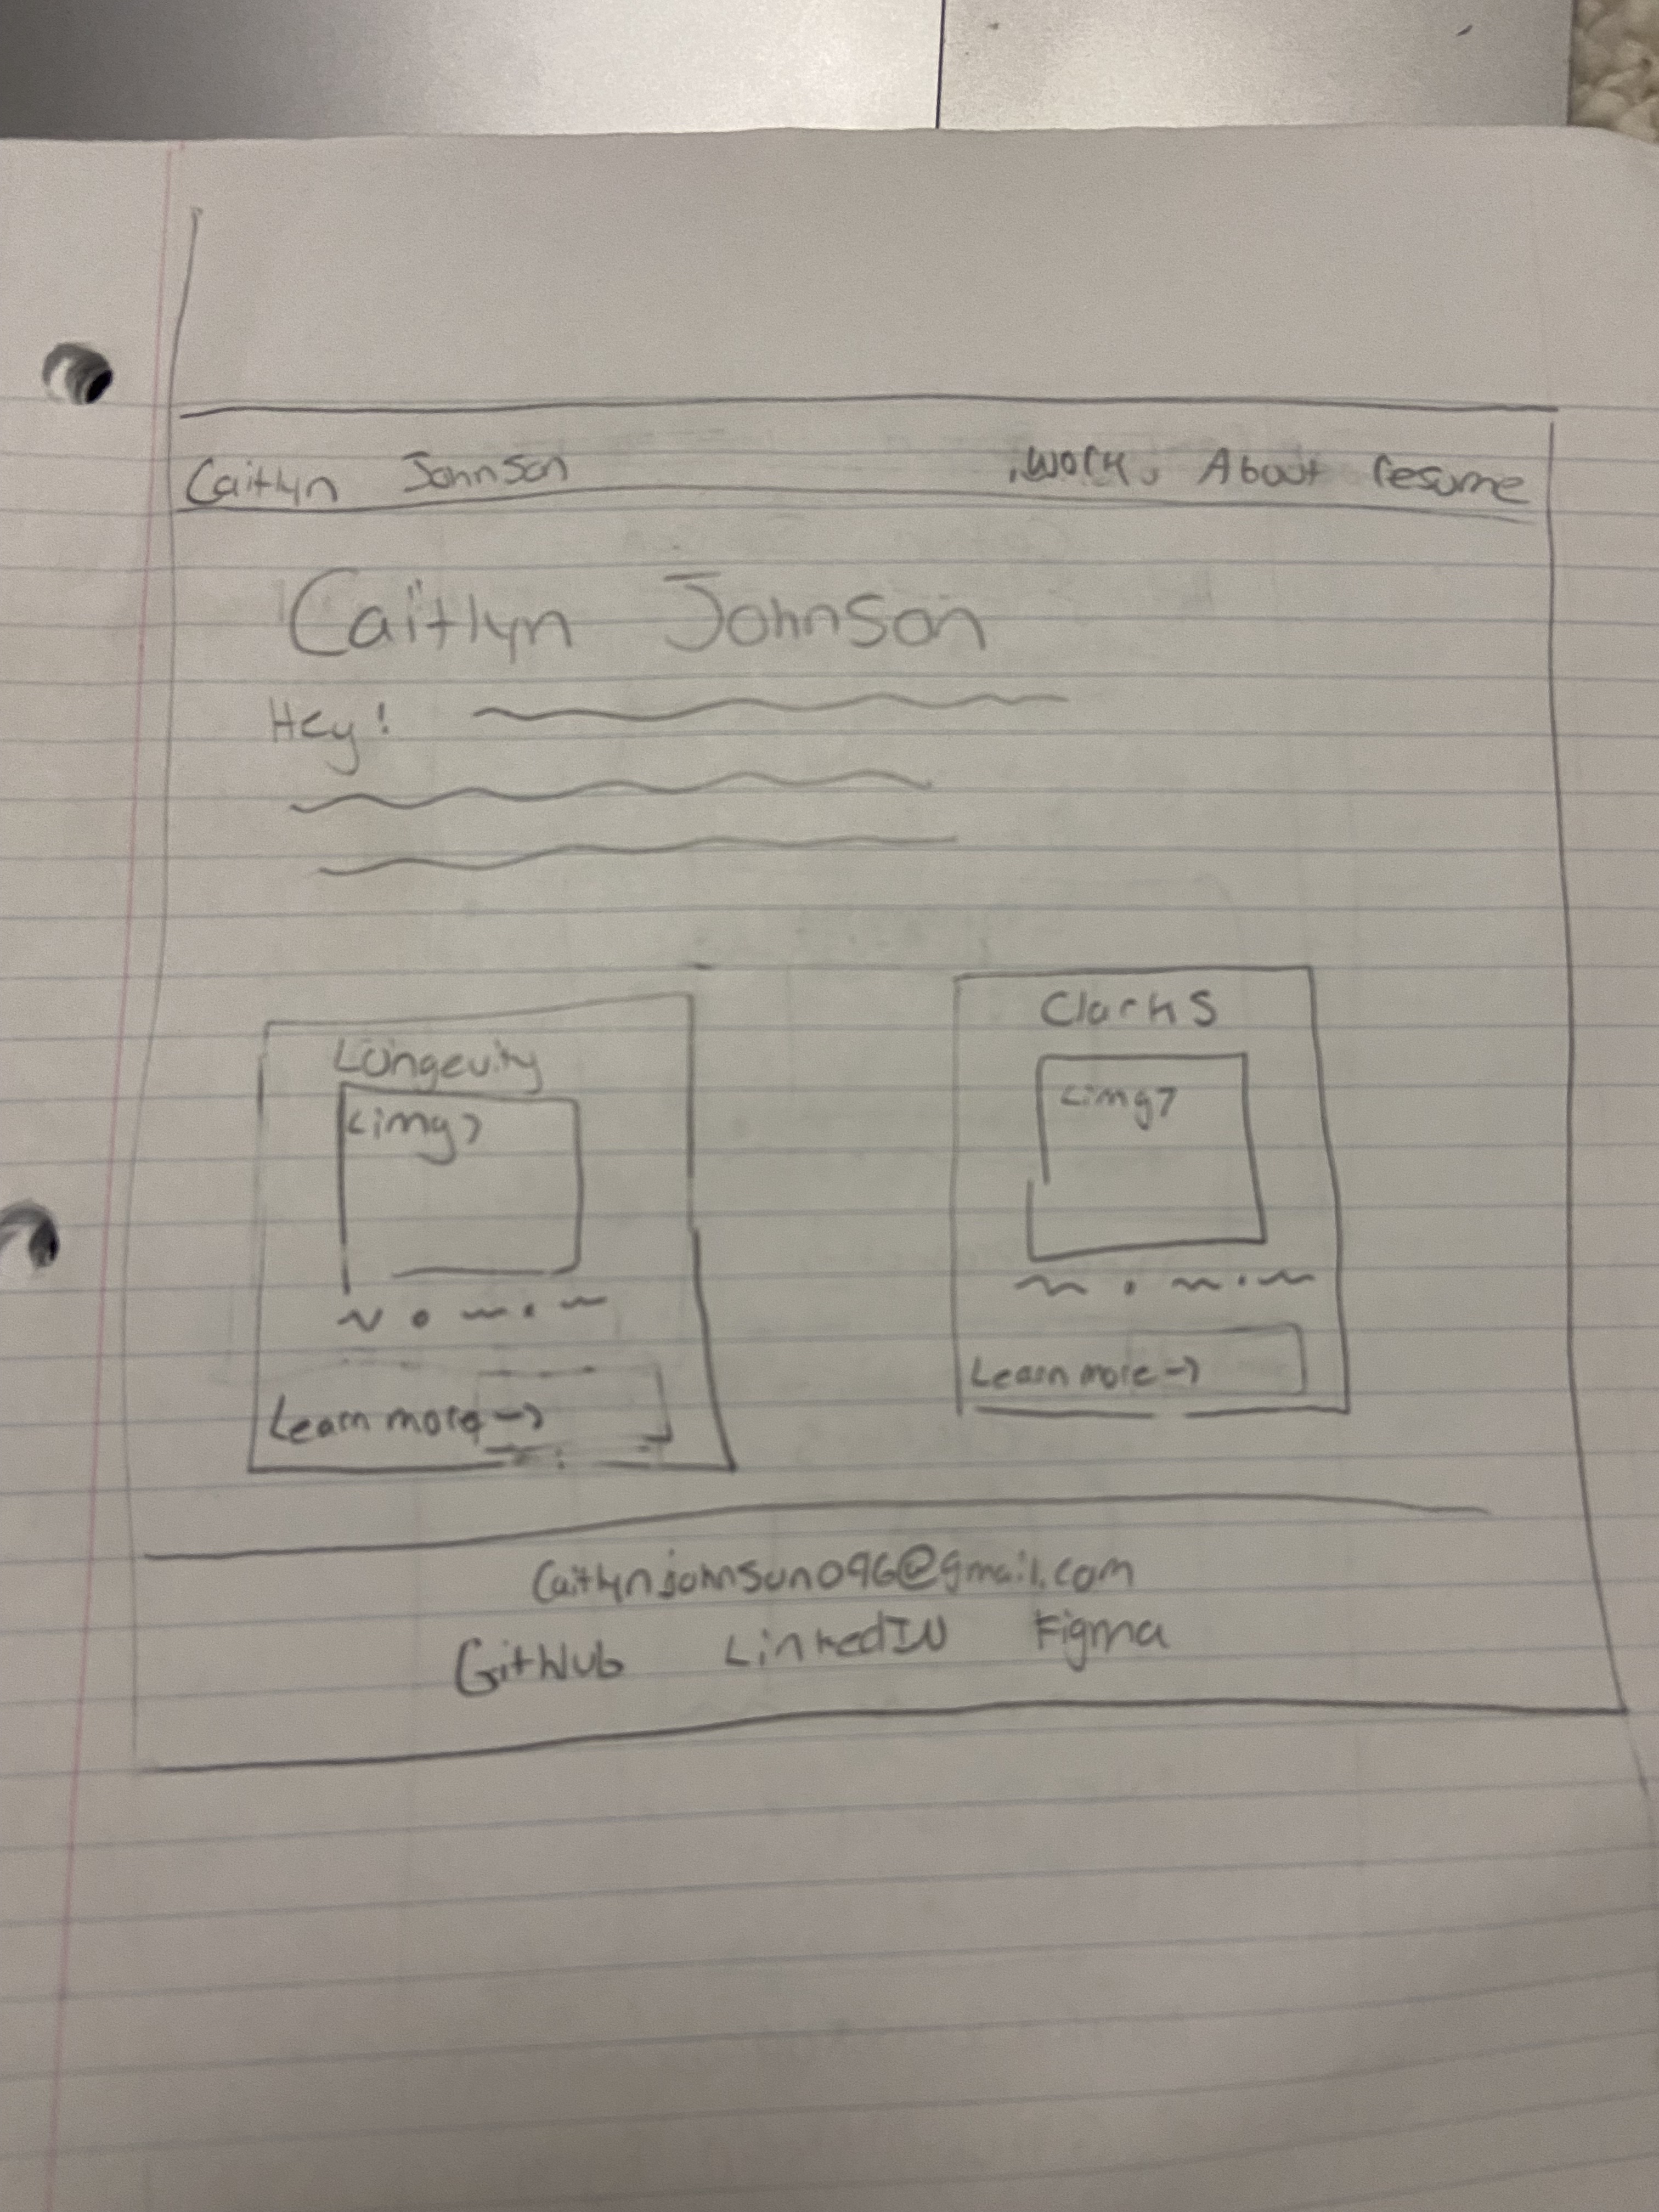 Caitlyn Johnson Work About resume
Caitlyn Johnson
Hey!
Longevity
<img>
Learn more ->
Clarks
<img>
Learn more ->
Caitlynjohnson096@gmail.com
GitHub LinkedIN Figma